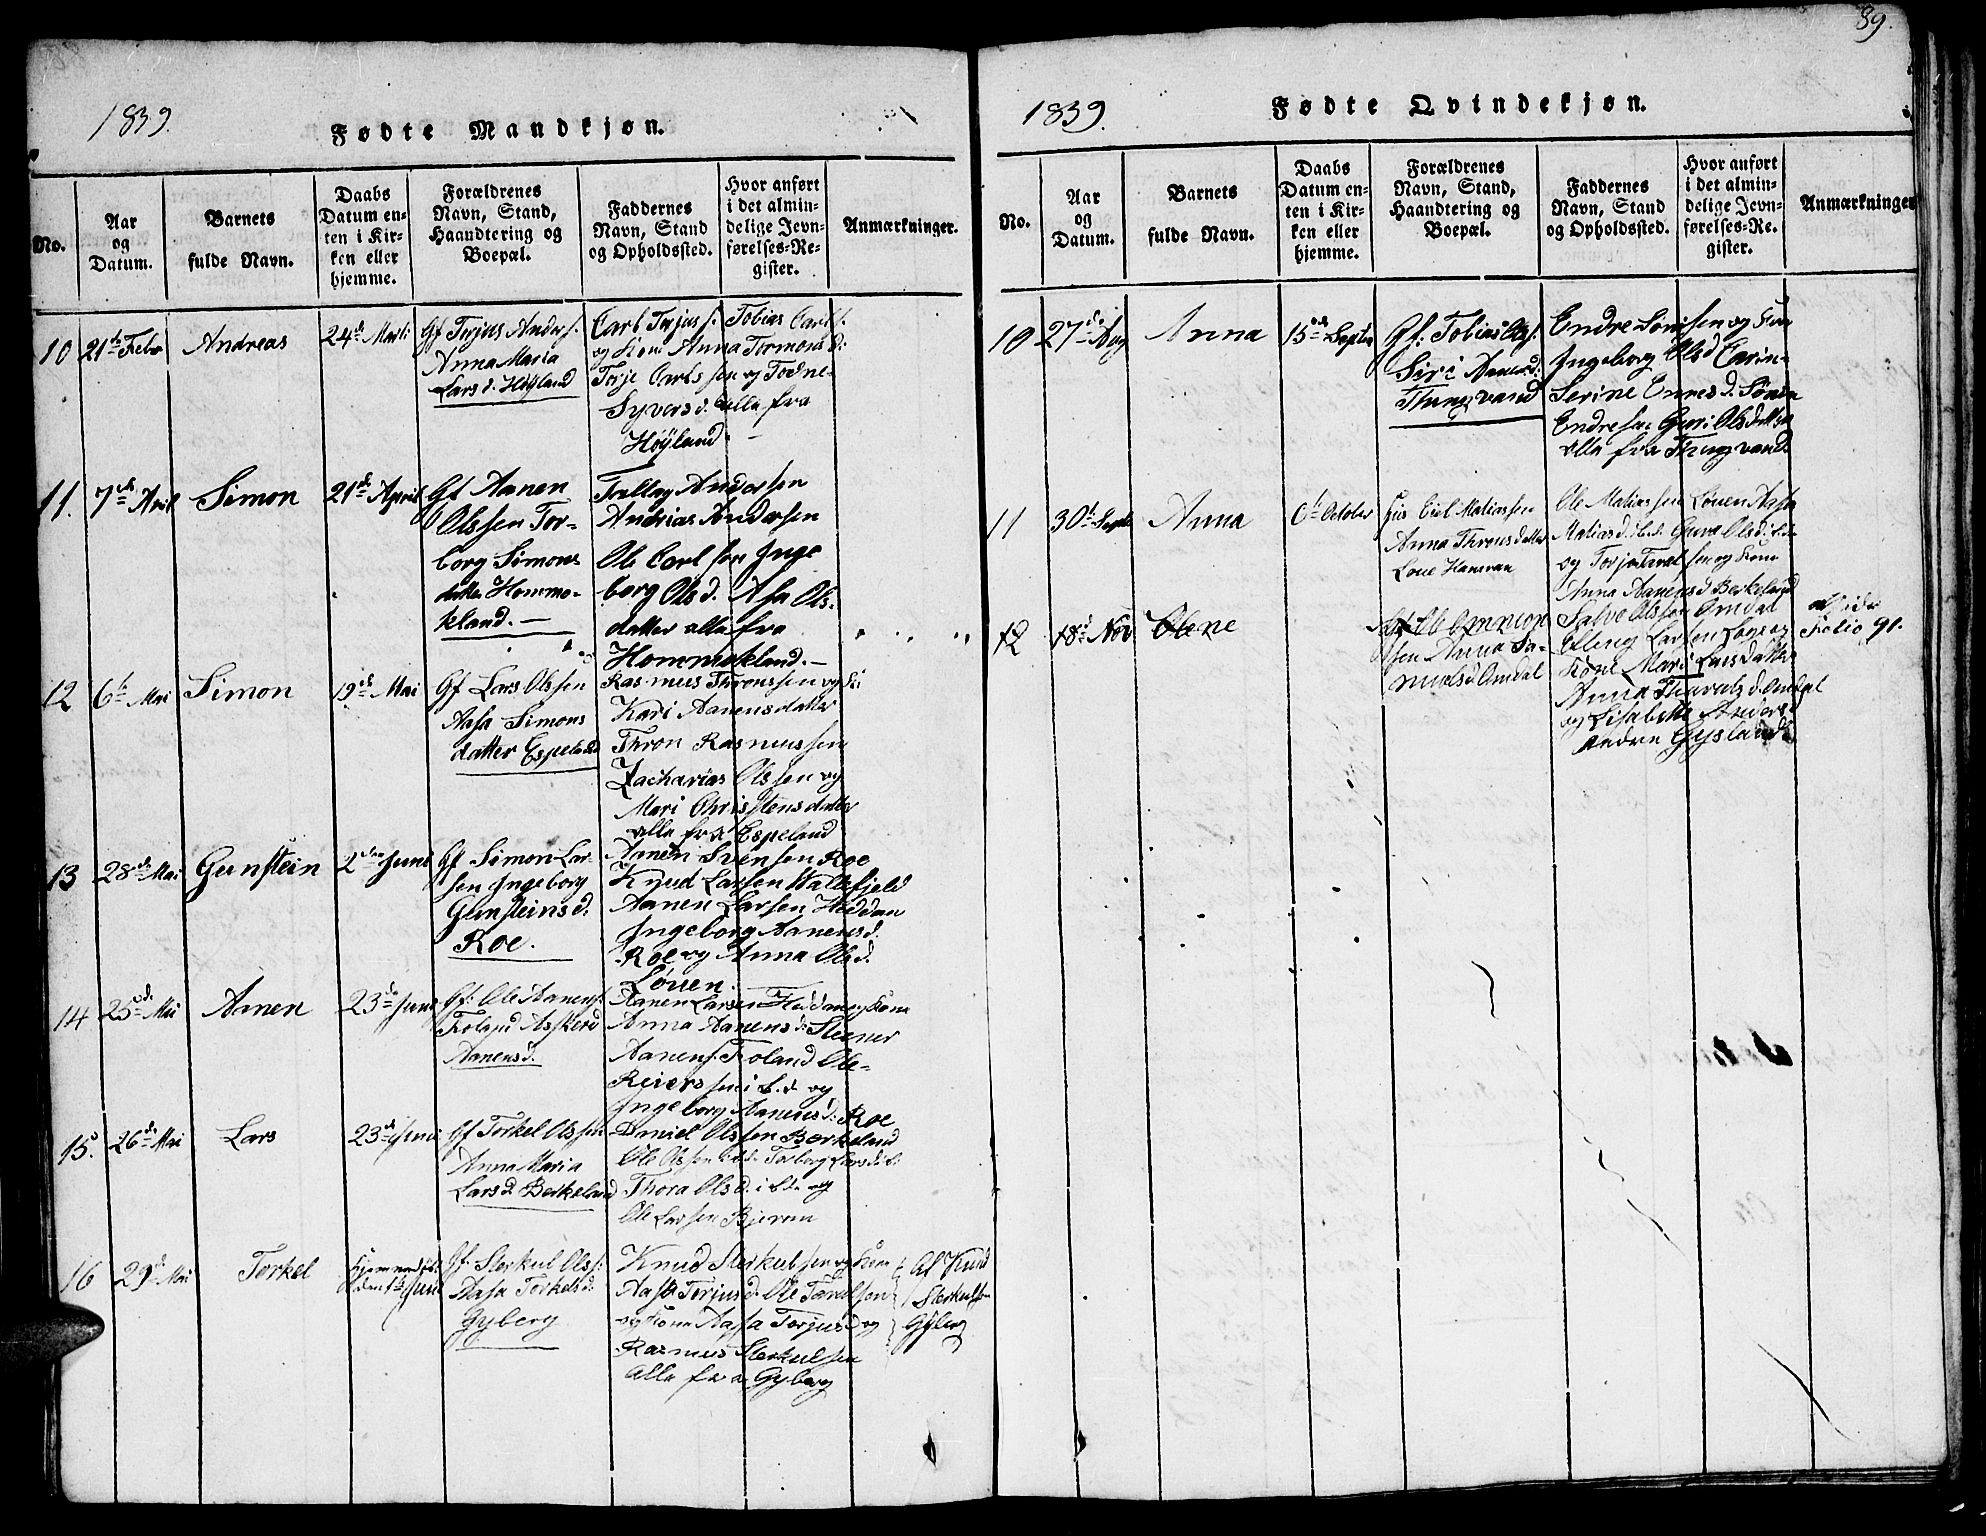 1839.
Fødte Mandkjøn.
No.
Aar
og
Datum.
Barnets
fulde Navn.
Daabs
Datum en-
ten i Kir-
ken eller
hjemme.
Forældrenes
Navn, Stand,
Haandtering og
Boepæl.
Faddernes
Navn, Stand
og Opholdssted.
Hvor anført
i det almin-
delige Jevn-
førelses-Re-
gister.
Anmærkninger.
10
21de Febr
Andreas
24de Marti
Gf Terjus Anders.
Anna Maria
Lars d. Høyland
Carl Terjus s. Tobias Carls.
og Kone Anna Tormons d:
Terje Carlssen og Todne
Syvers d. alle fra
Høyland.
11.
7de April
Simon
21de April
Gf Aanen
Olssen Tor-
borg Simons
datter Homme-
kland.-
Trellag Anderssen
Andrias Andersen
Ole Carlssen Inge
borg Ols d. Asa Ols-
datter alle fra
Hommekland.-
12
6te Mai
Simon
19de Mai
Gf Lars Olssen
Aasa Simons
datter Espeland
Rasmus Thronssen og K:
Kari Aanensdatter
Thron Rasmussen
Zacharias Olssen og
Mari Christensdatter
alle fra Espeland
13
28de Mai
Gunstein
2den Juni
Gf Simon Lar-
sen Ingeborg
Gunsteins d.
Roe.
Aanen Svensen Roe
Knud Larsen Hallefjeld
Aanen Larsen Heddan
Ingeborg Aanens d.
Roe og Anna Ols d.
Løuen
14
25de Mai
Aanen
23de Juni
Gf: Ole Aanens.
Troland Asskerd
Aanens d.
Aanen Larsen Heddan og Kone
Anna Aanens d: Steener
Aanens. Troland Ole
Reiers sen i b.d. og
Ingeborg Aanens d: Roe
15.
26de Mai
Lars
23de Juni
Gf Torkel Olssen
Anna Maria
Lars d. Berkeland
Daniel Olssen Berkeland
Ole Olssen ibd. Torberg Lars d i b.
Thora Ols d. i b.d. og
Ole Larsen Bjerum
16
29de Mai
Torkel
Juni
Gf. Sterkul Olss:
Aasa Torkels d.
Gyberg
Knud Sterkulsen og Kone
Aasa Terjus d. Ole Tarelsen
og Kone Aasa Torjus d og
Rasmus Sterkulsen
alle fra Gyberg
Af Knud
Sterkulsen
Gyberg
89.
1839.
Fødte Qvindekjøn.
No.
Aar
og
Datum.
Barnets
fulde Navn.
Daabs
Datum en-
ten i Kir-
ken eller
hjemme.
Forældrenes
Navn, Stand,
Haandtering og
Boepæl.
Faddernes
Navn, Stand
og Opholdssted.
Hvor anført
i det almin-
delige Jevn-
førelses-Re-
gister.
Anmærkninger
10
27de Aug
Anna
15de Septer
Gf: Tobias Ols.
Siri Aanens d:
Thungvand
Endre Tonisen og Kone
Ingeborg Ols d Carin-
Serine Ennes d. Tønnes
Endresen Guri Olsdatter
alle fra Thungvand
11
30te Septr
Anna
6te October
Hus Eiel Matiassen
Anna Thronsdatter
Loue Hamran
Ole Matiassen Løuen Aasa
Matias d. ibd. Guro Ols d i b.d.
og Torje Tarelssen og Kone
Anna Aanens d Berkeland
12
18de Nov
Olene
Gf Ole Omnion
sen Anna Sa-
muels d. Omdal
Salve Olssen Omdal
Elling Larsen Loge og
Kone Mari Larsdatter
Anna Tharalds d. Omdal
og Lisabette Anders d
Andre Gysland
Folio 91.